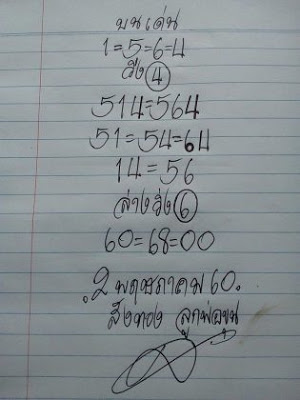 บนเด่น
1=5=6=4
วิ่ง 4
514=564
51=54=64
14=56
ล่างวิ่ง 6
60=68=00
2 พฤษภาคม 60.
สังข์ทอง ลูกพ่อขุน